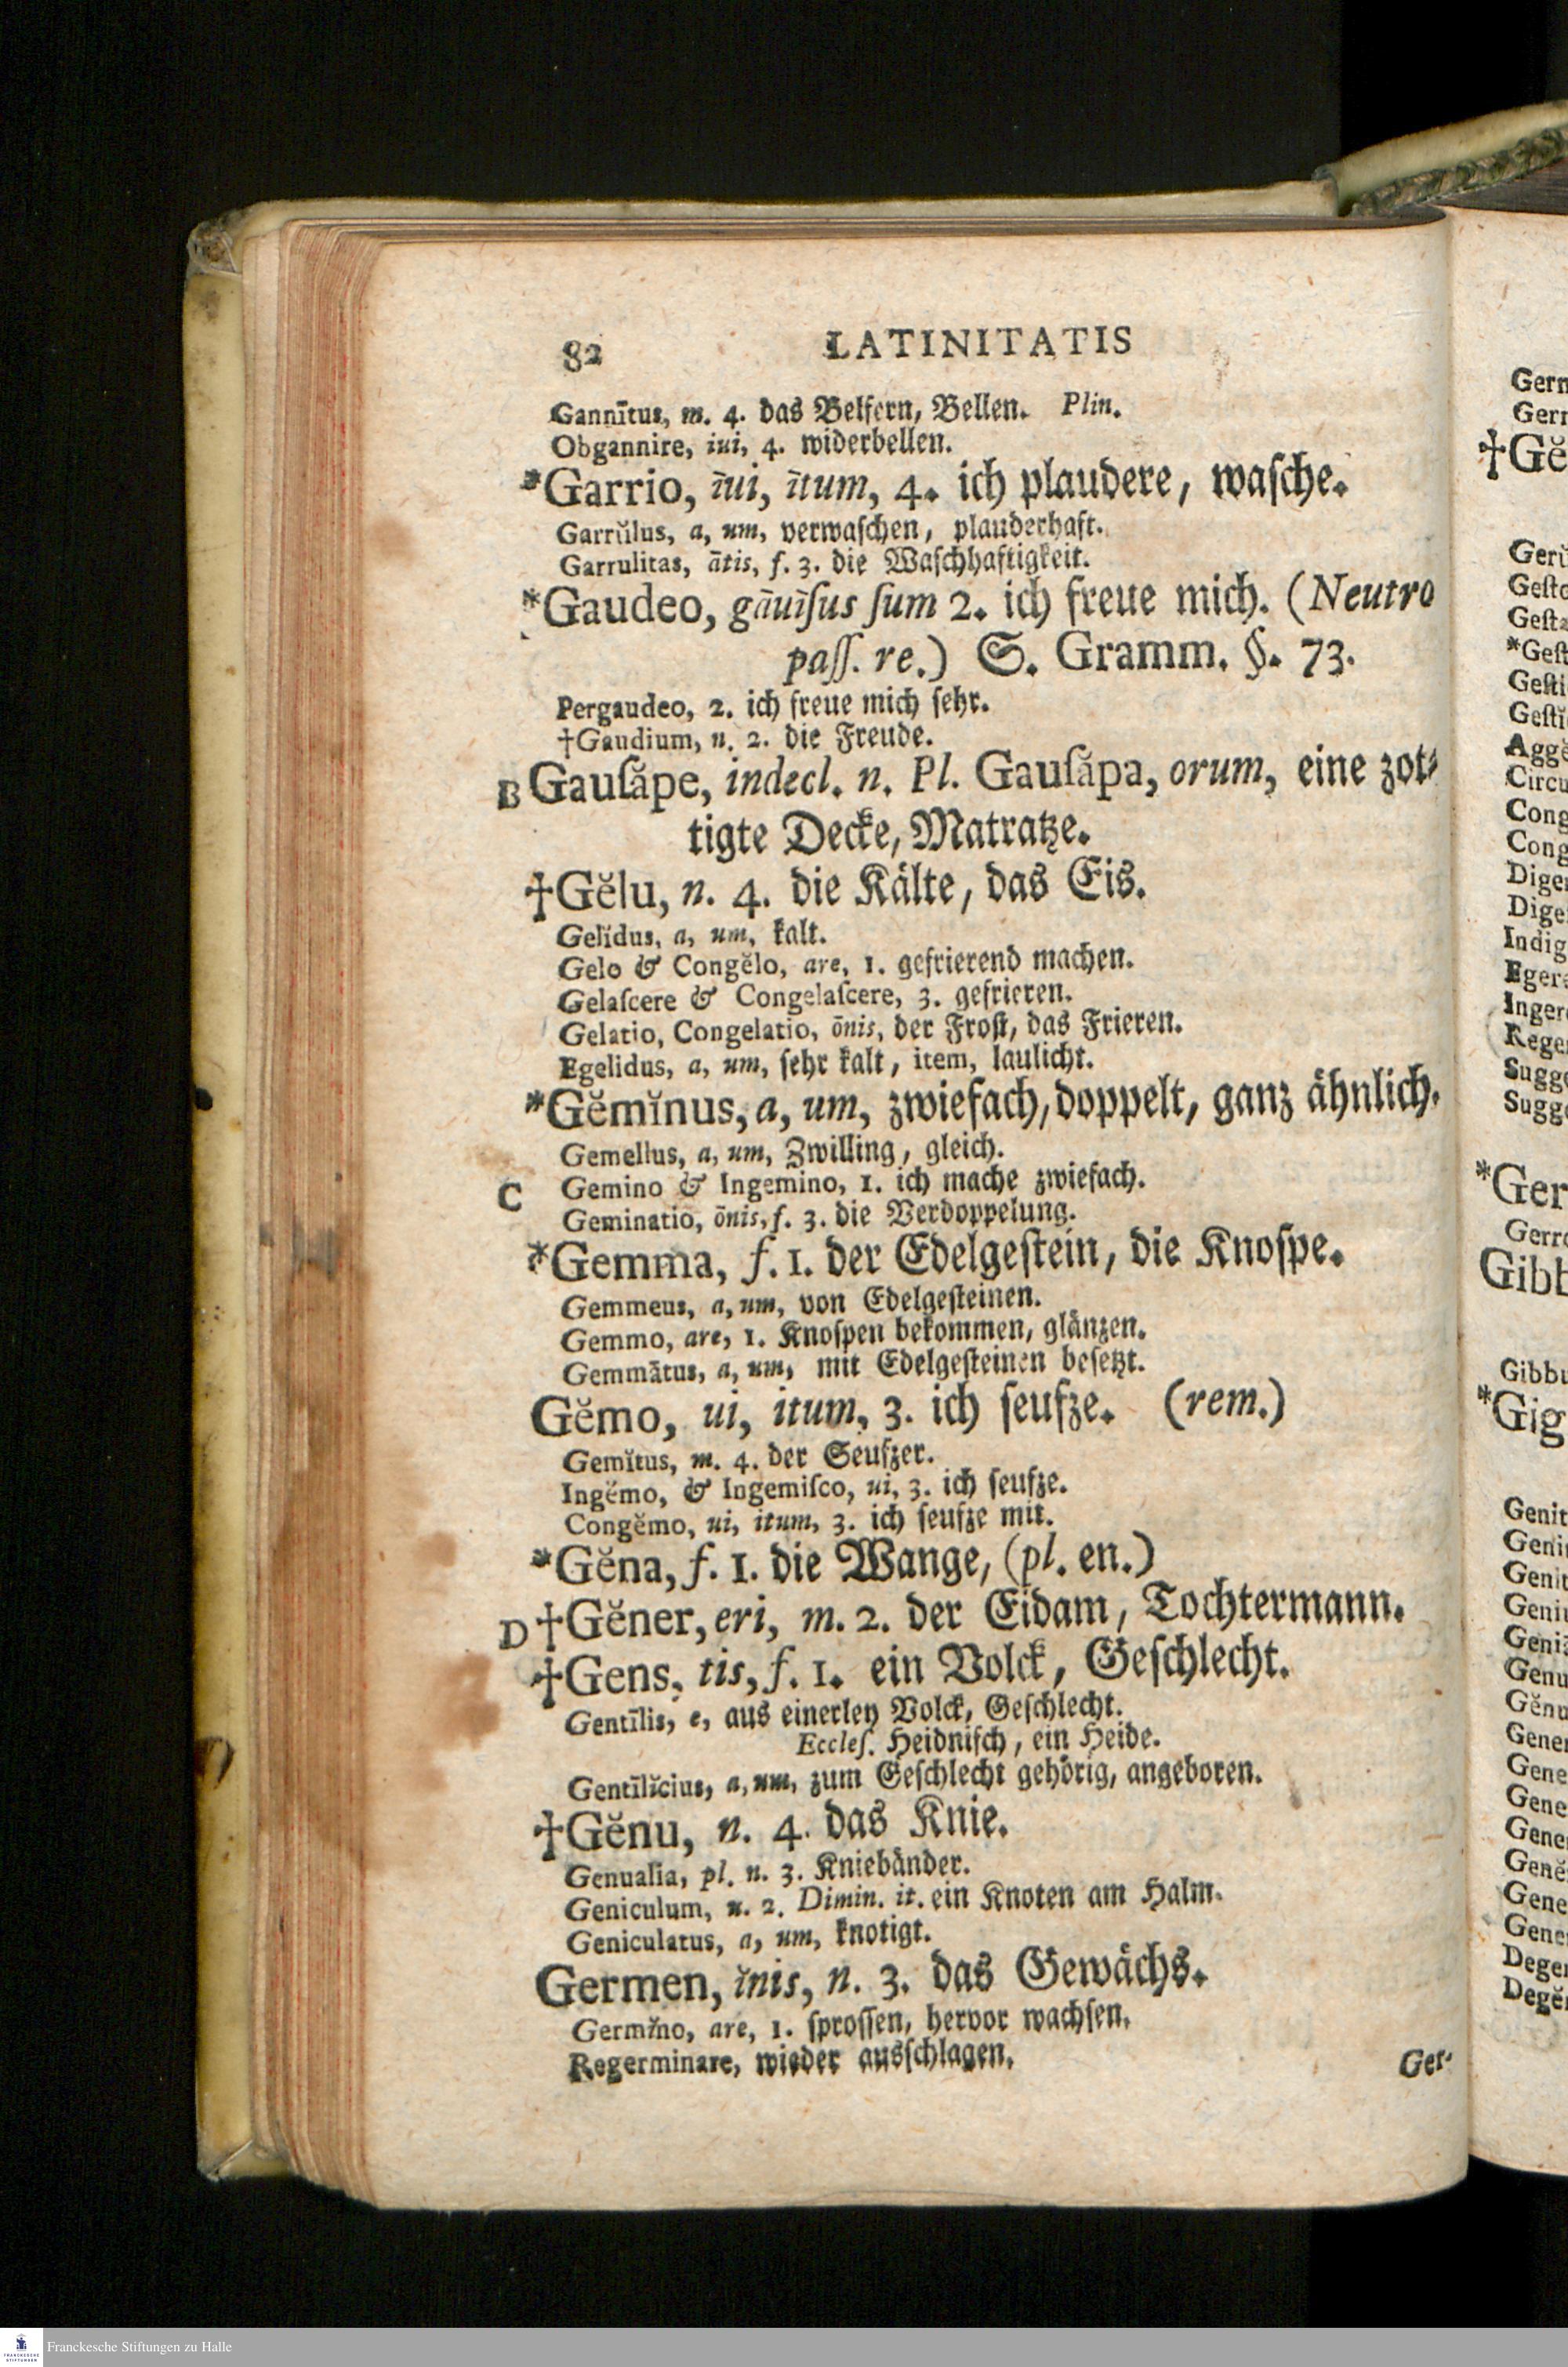 82 LATINITATIS
Gannītus, m. 4. das Belfern, Bellen. Plin.
Obgannire, iui, 4. widerbellen.
*Garrio, īui, ītum, 4. ich plaudere, waſche.
Garrŭlus, a, um, verwaſchen, plauderhaft.
Garrulitas, ātis, f. 3. die Waſchhaftigkeit.
*Gaudeo, gāuīſus ſum 2. ich freue mich. (Neutro
paſſ. re.) S. Gramm. §. 73.
Pergaudeo, 2. ich freue mich ſehr.
†Gaudium, n. 2. die Freude.
B Gauſăpe, indecl. n. Pl. Gauſăpa, orum, eine zot⸗
tigte Decke, Matratze.
†Gĕlu, n. 4. die Kälte, das Eis.
Gelĭdus, a, um, kalt.
Gelo & Congĕlo, are, 1. gefrierend machen.
Gelaſcere & Congelaſcere, 3. gefrieren.
Gelatio, Congelatio, ōnis, der Froſt, das Frieren.
Egelidus, a, um, ſehr kalt, item, laulicht.
*Gĕmĭnus, a, um, zwiefach, doppelt, ganz ähnlich.
Gemellus, a, um, Zwilling, gleich.
C Gemino & Ingemino, 1. ich mache zwiefach.
Geminatio, ōnis, f. 3. die Verdoppelung.
*Gemma, f. 1. der Edelgeſtein, die Knoſpe.
Gemmeus, a, um, von Edelgeſteinen.
Gemmo, are, 1. Knoſpen bekommen, glänzen.
Gemmātus, a, um, mit Edelgeſteinen beſetzt.
Gĕmo, ui, itum, 3. ich ſeufze. (rem.)
Gemĭtus, m. 4. der Seufzer.
Ingĕmo, & Ingemiſco, ui, 3. ich ſeufze.
Congĕmo, ui, itum, 3. ich ſeufze mit.
*Gĕna, f. 1. die Wange, (pl. en.)
D †Gĕner, eri, m. 2. der Eidam, Tochtermann.
†Gens, tis, f. 1. ein Volck, Geſchlecht.
Gentīlis, e, aus einerley Volck, Geſchlecht.
Eccleſ. Heidniſch, ein Heide.
Gentīlĭcius, a, um, zum Geſchlecht gehörig, angeboren.
†Gĕnu, n. 4. das Knie.
Genualia, pl. n. 3. Kniebänder.
Geniculum, n. 2. Dimin. it. ein Knoten am Halm.
Geniculatus, a, um, knotigt.
Germen, ĭnis, n. 3. das Gewächs.
Germĭno, are, 1. ſproſſen, hervor wachſen.
Regerminare, wieder ausſchlagen.
Ger-
Franckesche Stiftungen zu Halle